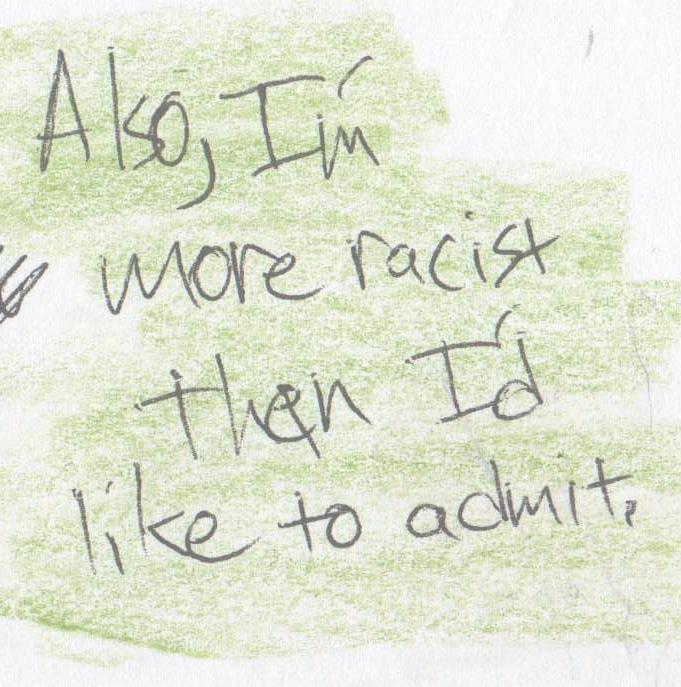 Also, I'm
more racist
then I'd
like to admit.